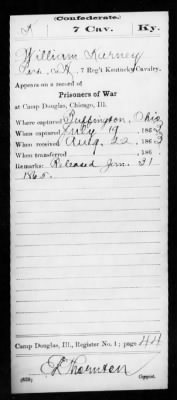 (Confederate.)
K 7 Cav. Ky.
William Kurney
Co. K, 7 Reg't Kentucky Cavalry.
Appears on a record of
Prisoners of War
at Camp Douglas, Chicago, Ill.
Where captured Buffington, Ohio
When captured July 19, 1863
When received Aug. 22, 1863
When transferred , 186
Remarks: Released Jan. 31
1865.
Camp Douglas, Ill., Register No. 1; page 44
Thornton
(639) Copyist.